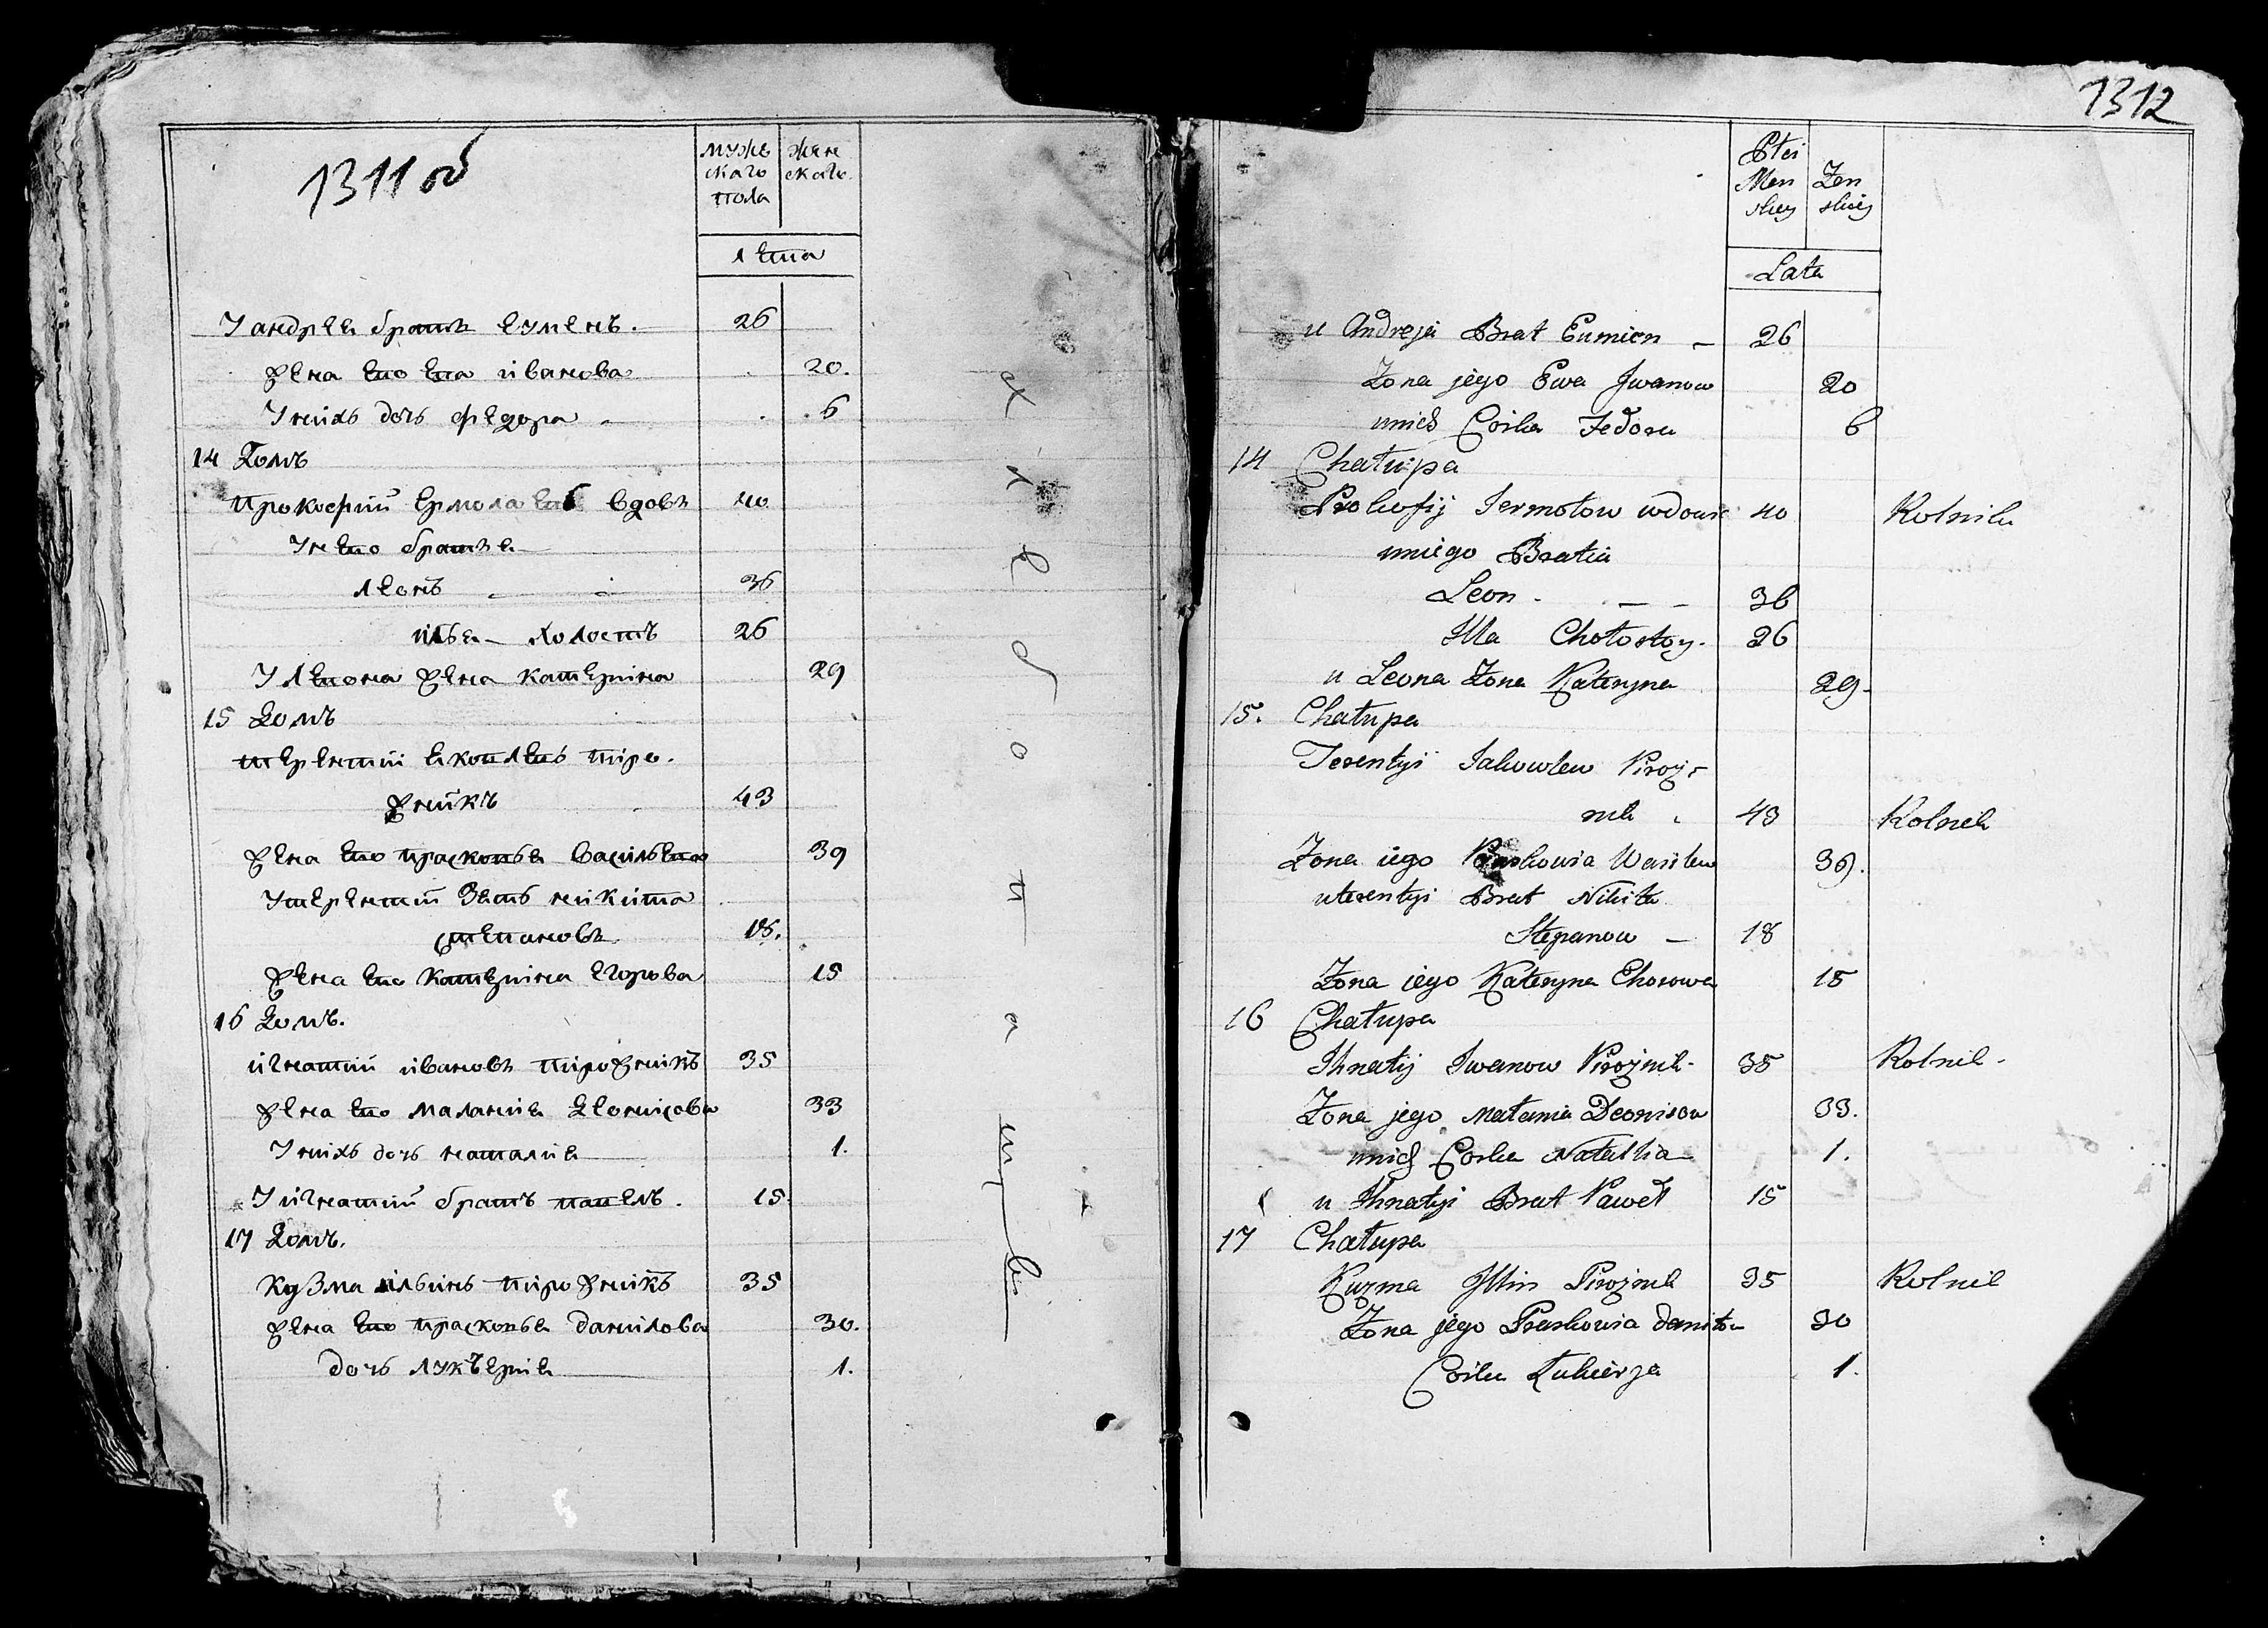 1311 об
мужь
скаго
пола
жен
скаго
лета
У андрея братъ еуменъ. 26
жена ево ева иванова 20.
У нихъ дочь федора 6
14 Домъ
прокофий ермолаевъ вдовъ 40
У нево братья
леонъ 36
илья – холостъ 26
У левона жена катерина 29
15 Домъ
терентий яковлевъ пиро-
жникъ 43
жена ево прасковья васильева 39
У терентия зять никита
степановъ 18.
жена ево катерина егорова 15
16 Домъ.
игнатий ивановъ пирожникъ 35
жена ево малания деонисова 33
У нихъ дочь наталия 1.
У игнатия братъ павелъ. 15.
17 Домъ.
кузма ильинъ пирожникъ 35
жена ево прасковья данилова 30.
дочь лукерия 1.
хлебопашцы
1312
Płci
Men
skiey
Żen
skiej
Lata
u Andreja Brat Eumien – 26
Żona jego Ewa Jwanow 20
unich Corka Fedora 6
14 Chałupa
Prokofij Jermołow wdowiec 40 Rolnik
uniego Bratia
Leon - – - 36
Illa Chołostoy. 26
u Leona Żona Kateryna 29.
15. Chałupa
Terentyi Jakowlew Piroż-
nik 43 Rolnik
Żona iego Praskowia Wasilew 39.
uterentyi Brat Nikita
Stepanow – 18
Żona jego Kateryna Ehorowa 15
16 Chałupa
Ihnatij Iwanow Pirożnik 35 Rolnik
Żona jego Matania Deonisow 33.
unich Corka Natallia 1.
u Ihnatyi Brat Paweł 15
17 Chałupa
Kuzma Jllin Pirożnik 35 Rolnik
Żona jego Praskowia Daniłow 30
Corka Łukierja 1.